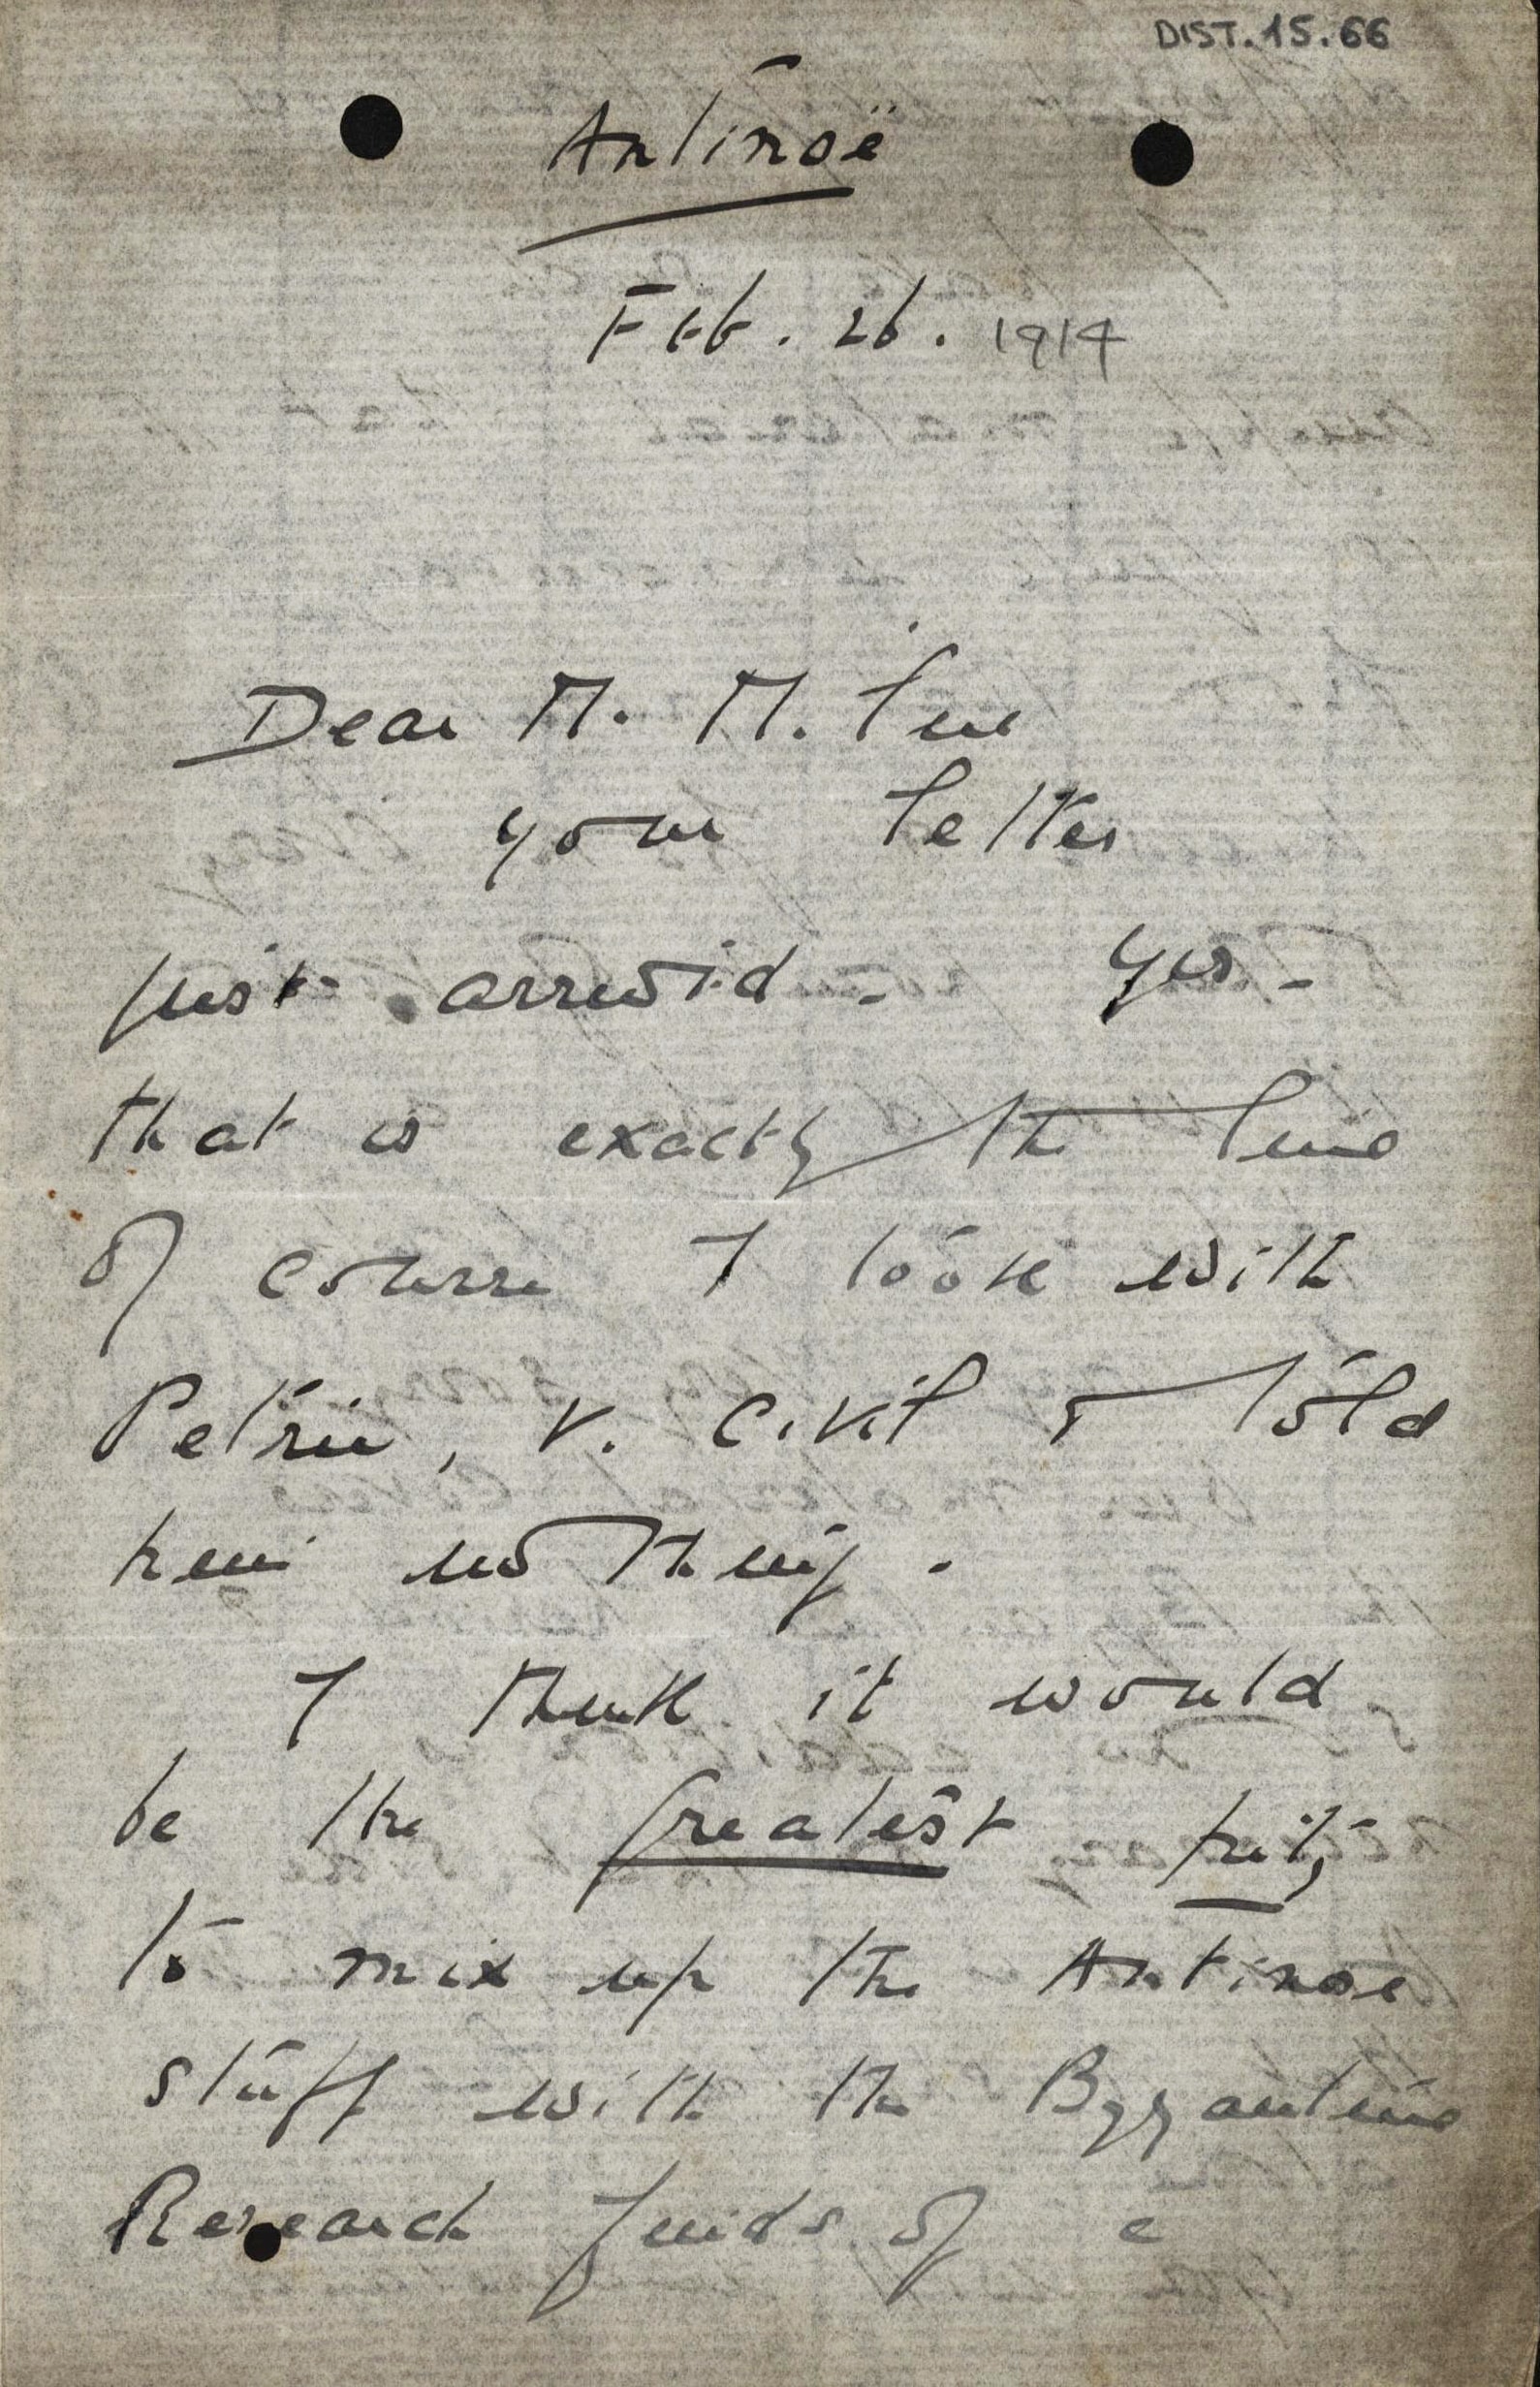 DIST. 15.66
Antinoë
Feb. 26. 1914
Dear M. M. Your
your letter
just arrived - Yes -
that is exactly the line
of course I took with
Petrie, v. civil & told
him nothing.
I think it would
be the greatest pity
to mix up the Antinoe
stuff with the Byzantine
Research funds of